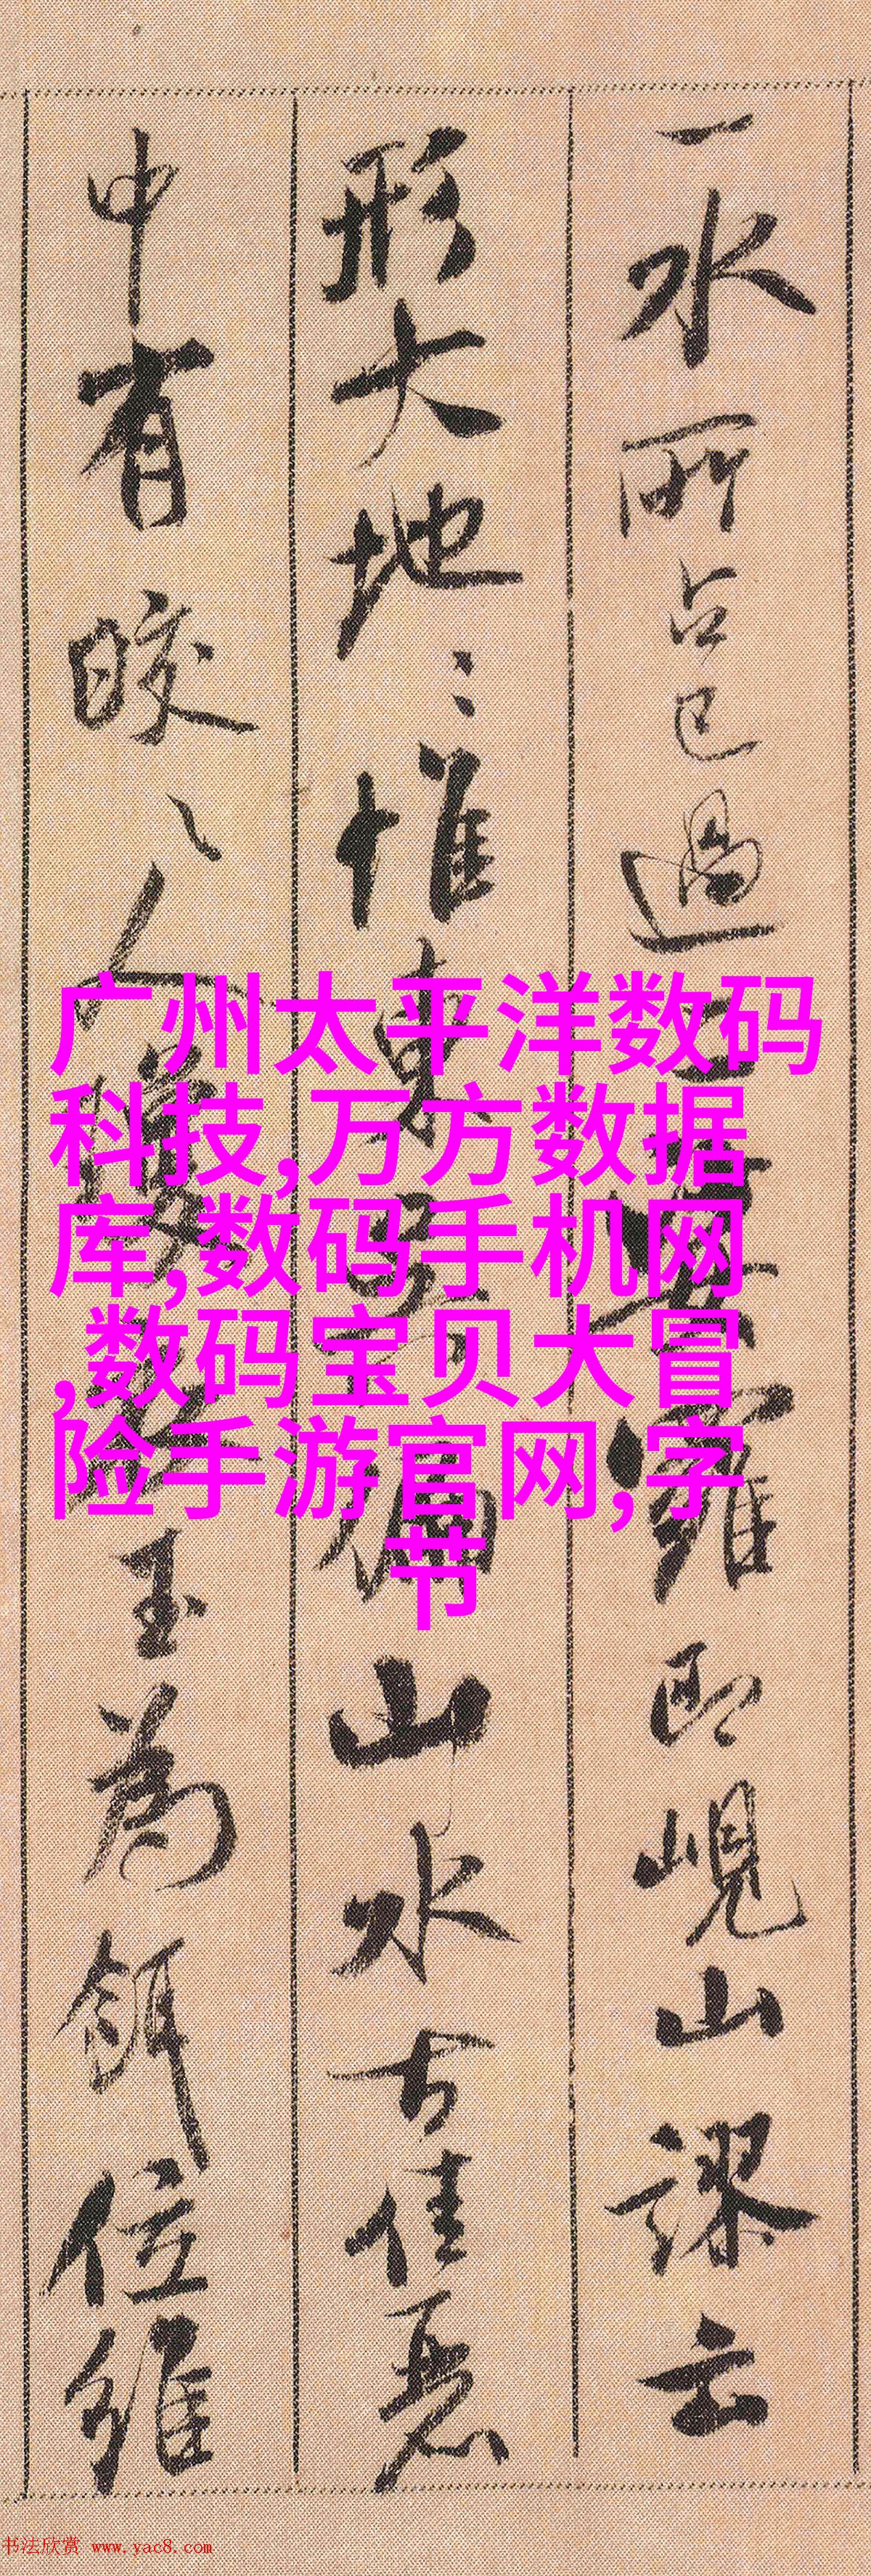 一水所占已過
羅即峴山謬云
形大地〻惟東
山水古佳惡
中有皎〻人
玉為餌位維
广州太平洋数码
科技,万方数据
库,数码手机网
,数码宝贝大冒
险手游官网,字
节
书法欣赏 www.yac8.com